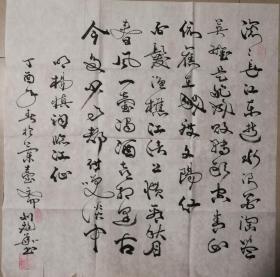 滚滚长江东逝水浪花淘尽
英雄是非成败转头空青山
依旧在几度夕阳红
白髮渔樵江渚上惯看秋月
春风一壶浊酒喜相逢古
今多少事都付笑谈中
明杨慎词临江仙
丁酉年春於京